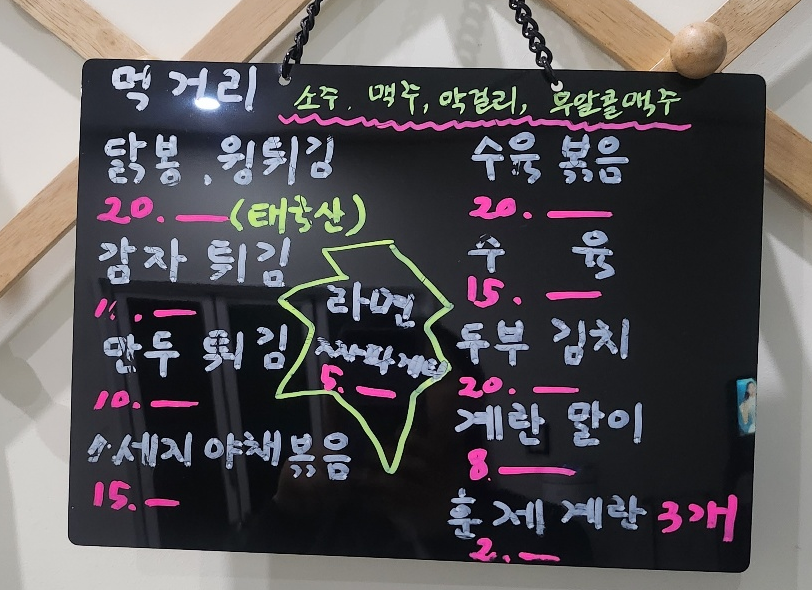 먹거리
소주, 맥주, 막걸리, 무알콜맥주
닭봉, 윙튀김
20.—(태국산)
감자 튀김
만두 튀김
10.—
소세지 야채볶음
15.—
라면
짜파게티
5.—
수육 볶음
20.—
수 육
15.—
두부 김치
20.—
계란 말이
8.—
훈제 계란 3개
2.—